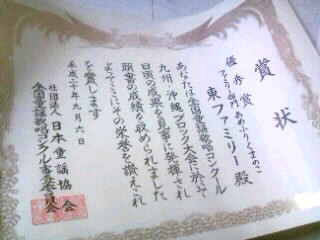 賞状
優秀賞
ファミリー部門 あめふりくまのこ
東ファミリー 殿
あなたは全国童謡歌唱コンクール
九州・沖縄ブロック大会に於いて
日頃の成果を見事に発揮され
頭書の成績を収められました
よってここにその栄誉を讃えられ
を賞します
平成二十年九月六日
社団法人 日本童謡協会
全国童謡歌唱コンクール事務局